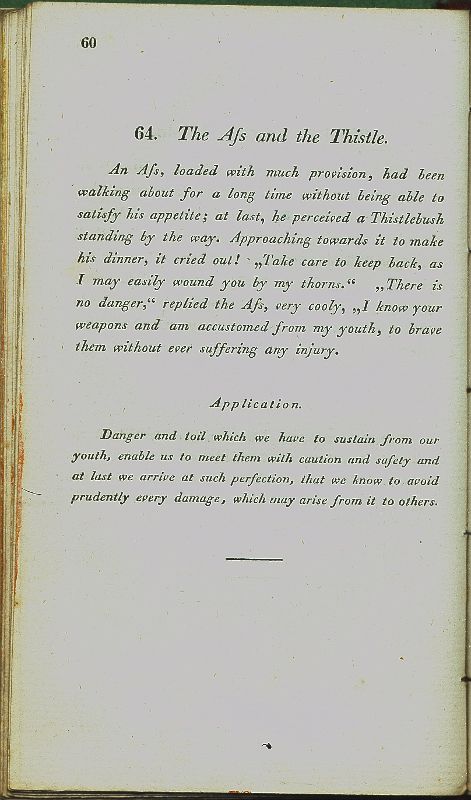 60
64. The Aſs and the Thistle.
An Aſs, loaded with much provision, had been
walking about for a long time without being able to
satisfy his appetite; at last, he perceived a Thistlebush
standing by the way. Approaching towards it to make
his dinner, it cried out! „Take care to keep back, as
I may easily wound you by my thorns.“ „There is
no danger,“ replied the Aſs, very cooly, „I know your
weapons and am accustomed from my youth, to brave
them without ever suffering any injury.
Application.
Danger and toil which we have to sustain from our
youth, enable us to meet them with caution and safety and
at last we arrive at such perfection, that we know to avoid
prudently every damage, which may arise from it to others.